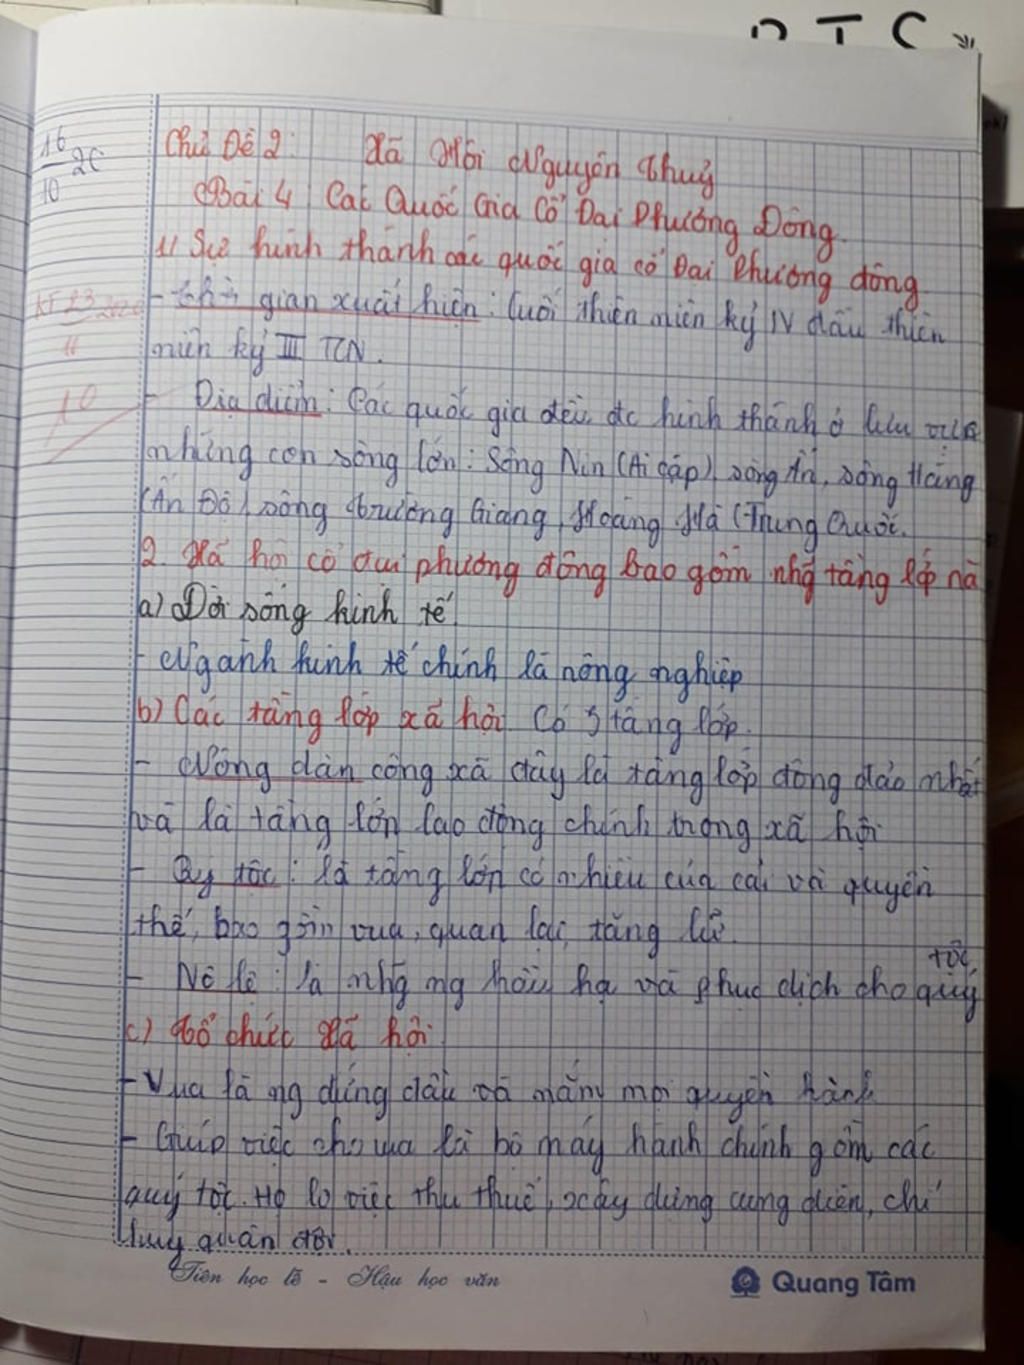 16/10 20
Chủ Đề 2: Xã Hội Nguyên Thuỷ
Bài 4 Các Quốc Gia Cổ Đại Phương Đông.
1/ Sự hình thành các quốc gia cổ Đại Phương đông
- thời gian xuất hiện: Cuối thiên niên kỷ IV đầu thiên
niên kỷ III TCN.
- Địa điểm: Các quốc gia đều đc hình thành ở lưu vực
những con sông lớn: Sông Nin (Ai cập), sông Ấn, sông Hằng
(Ấn Độ), sông trường Giang, Hoàng Hà (Trung Quốc.
2. Xã hội cổ đại phương đông bao gồm nhg tầng lớp nà
a) Đời sống kinh tế
- Nganh kinh tế chính là nông nghiệp
b) Các tầng lớp xã hội Có 3 tầng lớp.
- Nông dân công xã đây là tầng lớp đông đảo nhất
và là tầng lớp lao động chính trong xã hội
- Quý tộc: là tầng lớp có nhiều của cải và quyền
thế, bao gồm vua, quan lại, tăng lữ.
- Nô lệ: là nhg ng hầu hạ và phục dịch cho quý
tộc
c) tổ chức Xã hội
- Vua là ng đứng đầu và nắm mọi quyền hành
- Giúp việc cho vua là bộ máy hành chính gồm các
quý tộc. Họ lo việc thu thuế, xây dựng cung điện, chỉ
huy quân đội.
Tiên học lễ - Hậu học văn
Quang Tâm